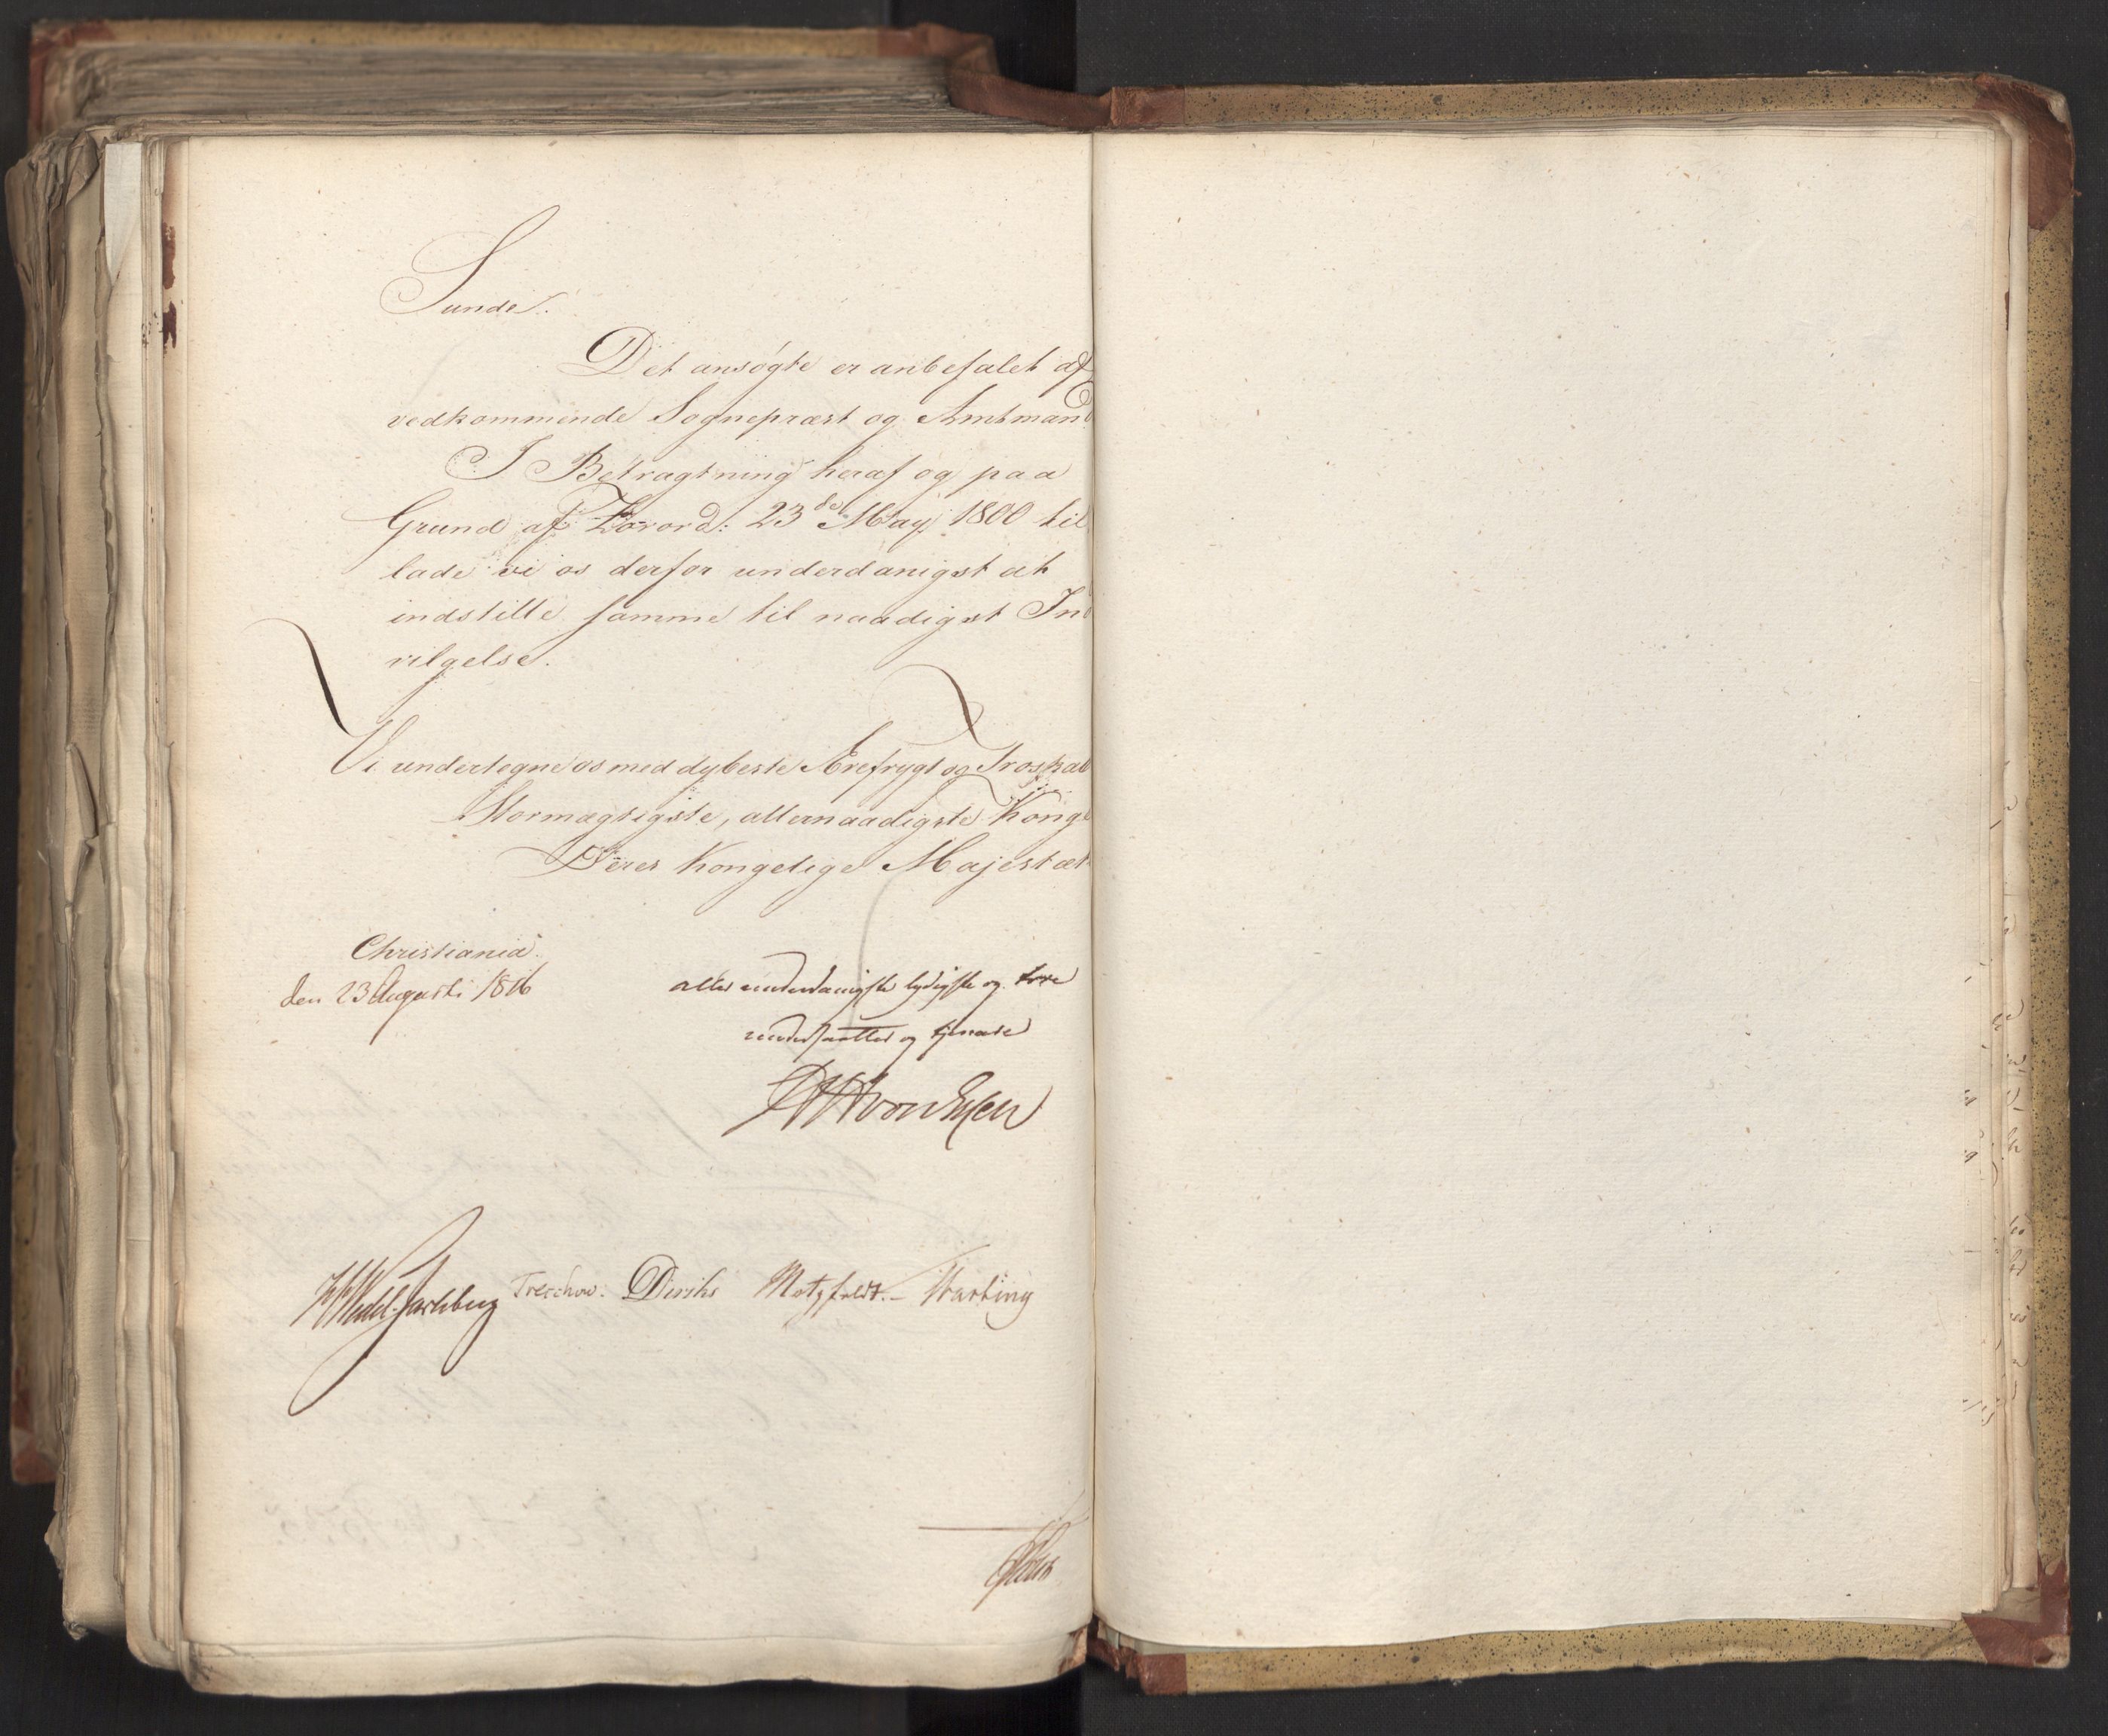 Sunde.
Det ansøgte er anbefalet af
vedkommende Sognepræst og Amtmand
I Betragtning heraf og paa
Grund af Forord: 23de May 1800 til
lade vi os derfor underdanigst at
indstille samme til naadigst Ind
vilgelse.
Vi undertegne os med dybeste Ærefrygt og Troskab
Stormægtigste, allernaadigste Konge
Deres Kongelige Majestæt
Christiania
den 23 Augusti 1816
allerunderdanigste lydigste og troe
undersaatter og tjenare
von Essen
Wedel-Jarlsberg Treschow. Diriks Motzfeldt. - Krebting